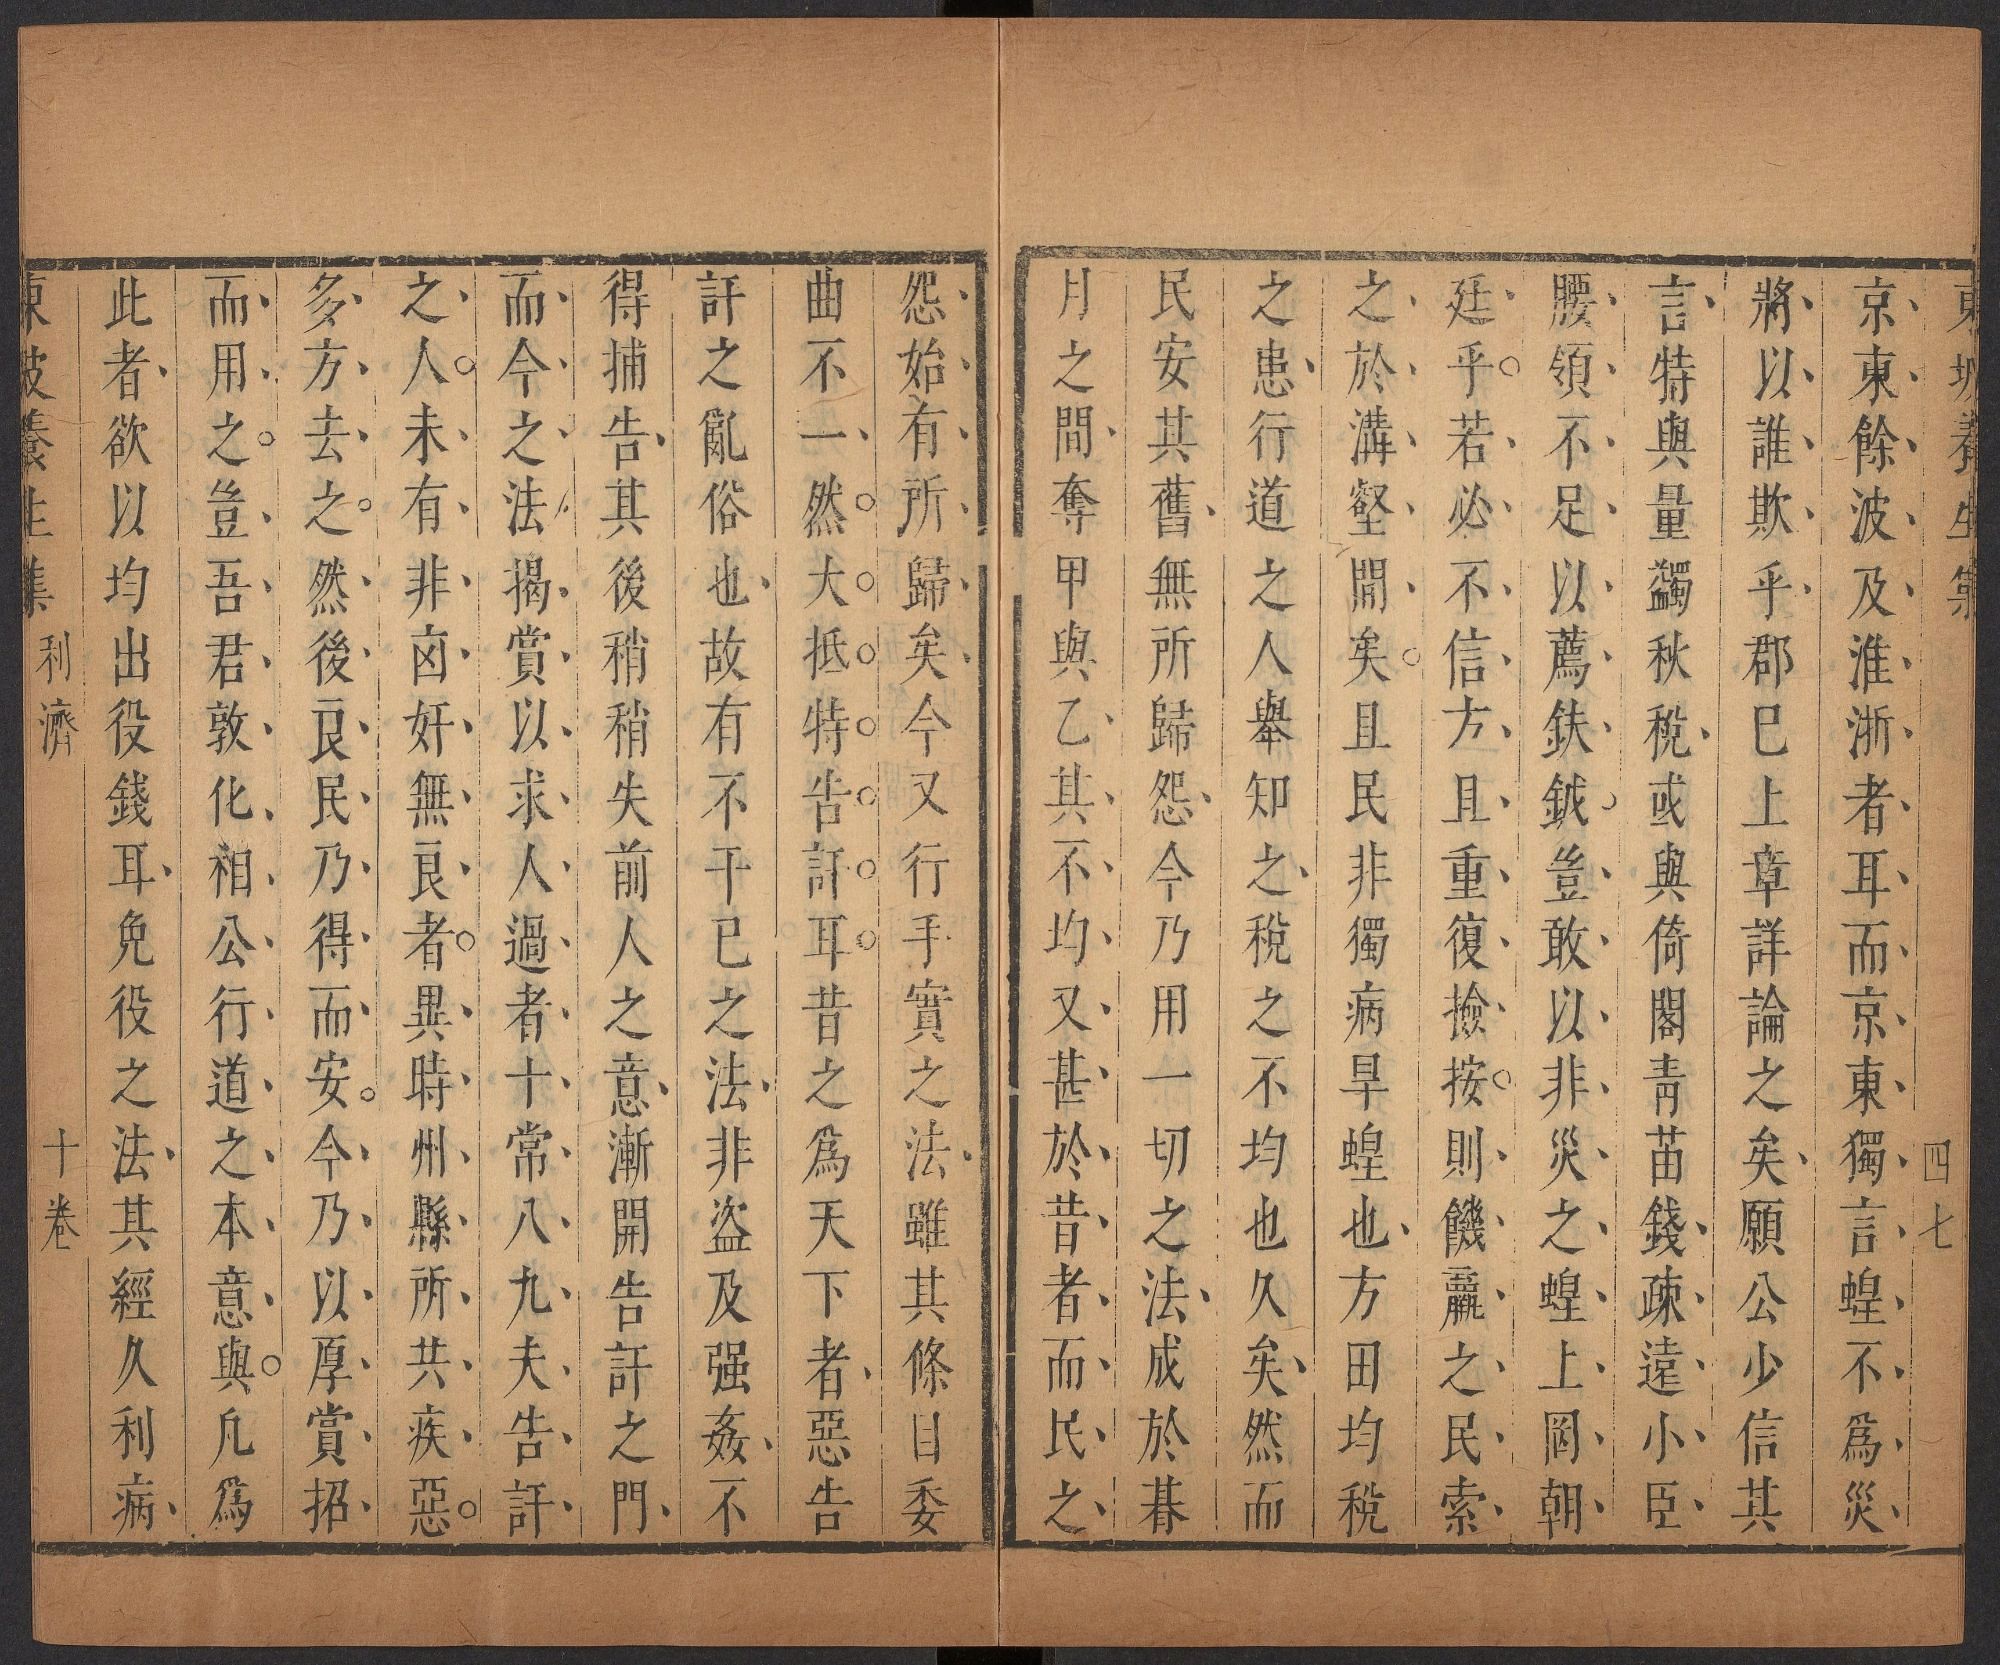 東坡養生集
四七
京東餘波及淮浙者耳而京東獨言蝗不爲災
將以誰欺乎郡巳上章詳論之矣願公少信其
言特與量蠲秋稅或與倚閣青苗錢疎遠小臣
腰領不足以薦鈇鉞豈敢以非災之蝗上罔朝
廷乎若必不信方且重復撿按則饑羸之民索
之於溝壑間矣且民非獨病旱蝗也方田均稅
之患行道之人舉知之稅之不均也久矣然而
民安其舊無所歸怨今乃用一切之法成於朞
月之間奪甲與乙其不均又甚於昔者而民之
怨始有所歸矣今又行手實之法雖其條目委
曲不一然大抵特告訐耳昔之爲天下者惡告
訐之亂俗也故有不干已之法非盜及强姦不
得捕告其後稍稍失前人之意漸開告訐之門
而今之法揭賞以求人過者十常八九夫告訐
之人未有非凶奸無良者異時州縣所共疾惡
多方去之然後良民乃得而安今乃以厚賞招
而用之豈吾君敦化相公行道之本意與凡爲
此者欲以均出役錢耳免役之法其經久利病
東坡養生集
利濟
十卷